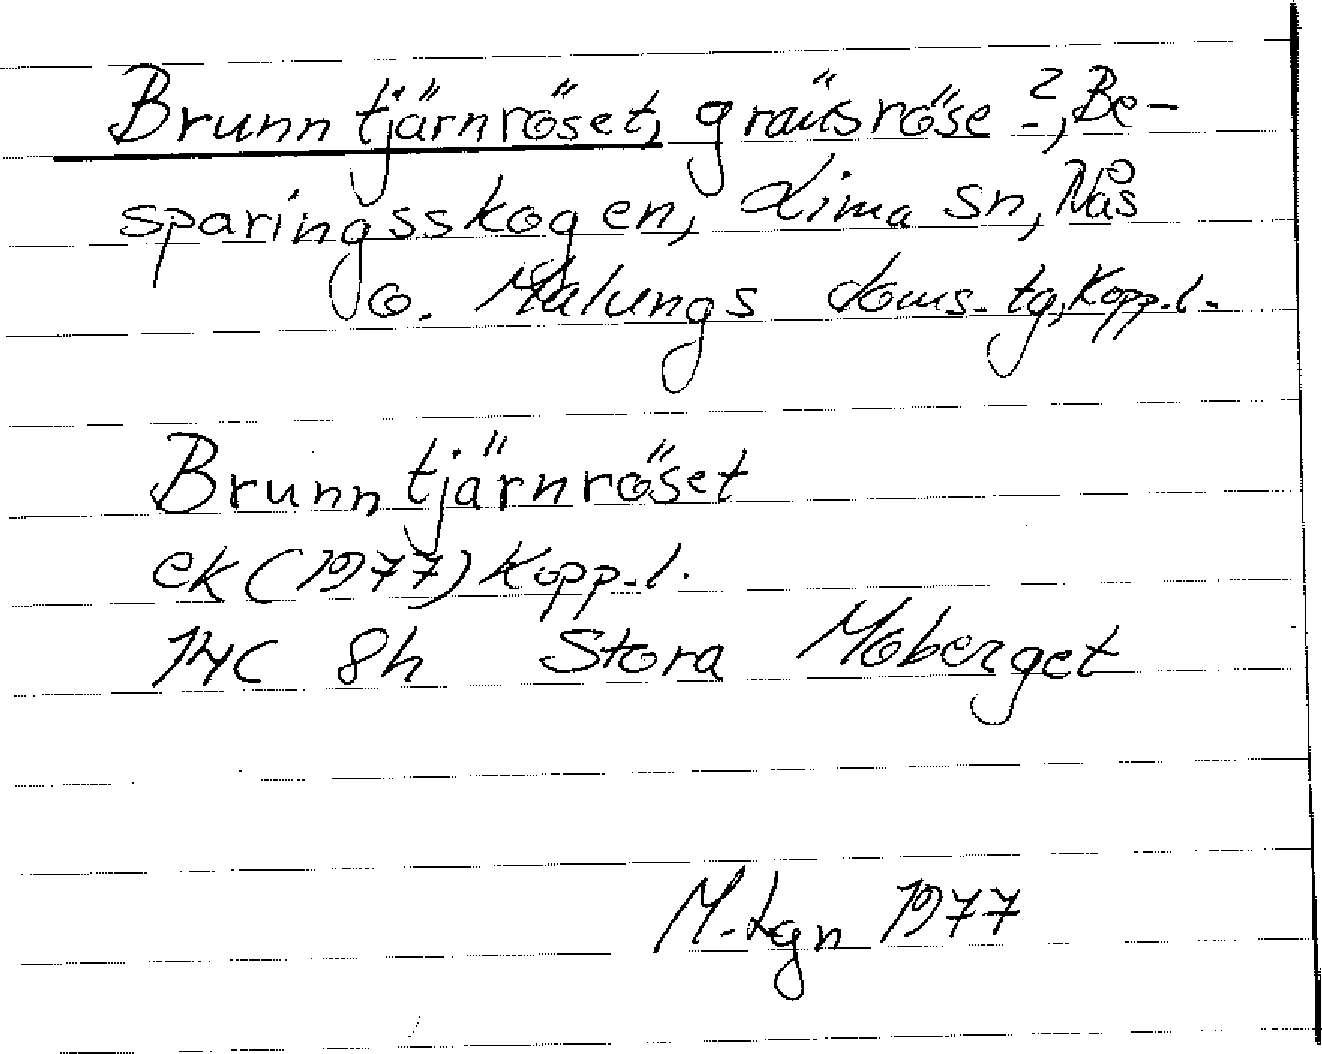 Brunntjärnröset, gränsröse ?, Be-
sparingsskogen, Lima sn, Nås
o. Malungs doms. tg, Kopp. l.
Brunntjärnröset
ek (1977) Kopp. l.
14C 8h Stora Moberget
M. Lgn 1977